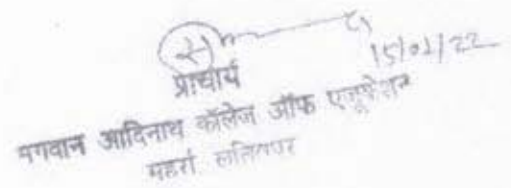 15/01/22
प्राचार्य
भगवान आदिनाथ कॉलेज ऑफ एजूकेशन
महर्रा ललितपुर